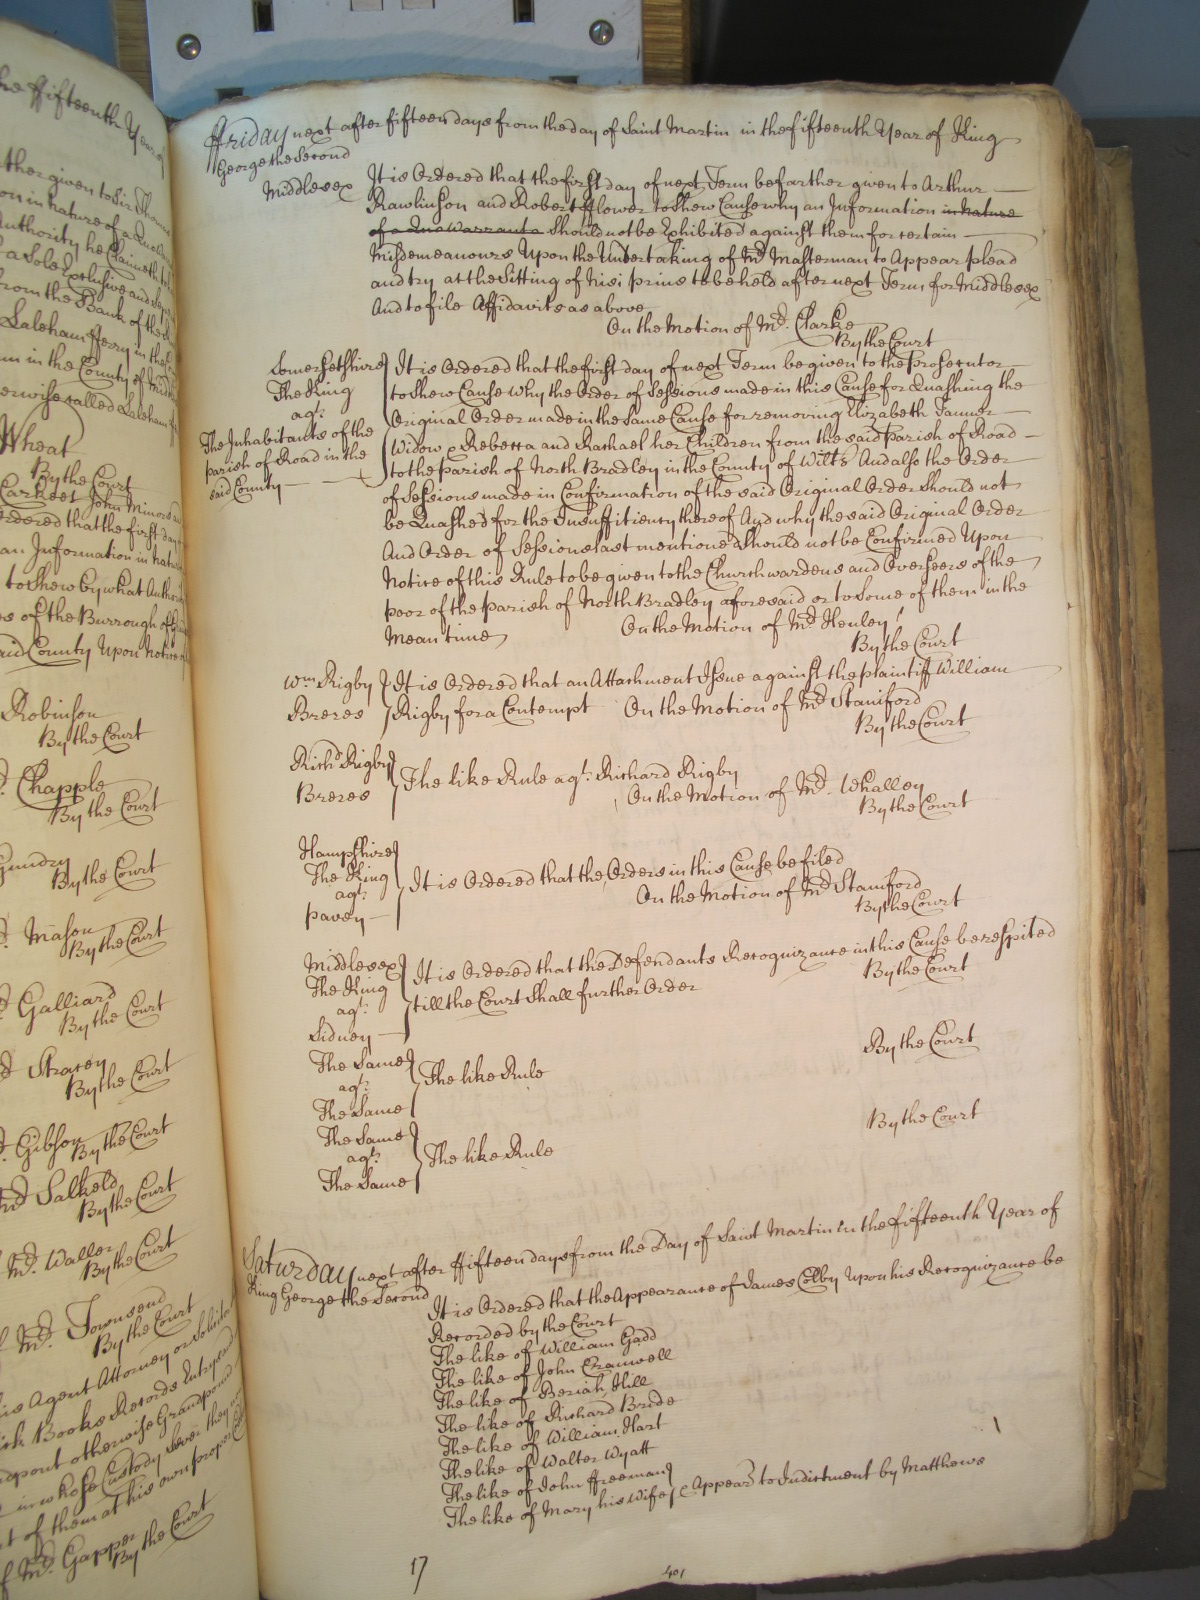 he fifteenth Year of
ther given to Sir Thomas
on in nature of a Quo
Authority he Claimeth to
a Sole Exclusive and
from the Bank of the
Laleham fferry in the
in the County of Midd
erwise called Laleham
Wheat
By the Court
John Minors
Ordered that the first day
an Information in natur
to Shew by what Autho
es of the Burrough of
aid County Upon Notice
Robinson
By the Court
Chapple
By the Court
Gundry
By the Court
Mason
By the Court
Galliard
By the Court
Stracey
By the Court
Gibson
By the Court
Md Salkeld
By the Court
Mr. Waller
By the Court
f Mr. Townsend
By the Court
is Agent Attorney or Sollicitor
Books Records
otherwise Grampound
in whose Custody Soever they
t of them at his own proper
f Mr. Gapper
By the Court
Friday next after fifteen days from the day of Saint Martin in the fifteenth Year of King
George the Second
Middlesex It is Ordered that the first day of next Term be farther given to Arthur
Rawlinson and Robert fflower to Shew Cause why an Information in nature
of a Quo Warranto Should not be Exhibited against them for certain
Misdemeanours Upon the Undertaking of Mr. Masterman to Appear plead
and try at the Sitting of Nisi prius to be held after next Term for Middlesex
And to file Affidavits as above
On the Motion of Mr. Clarke
By the Court
Somersetshire It is Ordered that the first day of next Term be given to the Prosecutor
The King to Shew Cause why the Order of Sessions made in this Cause for Quashing the
agt. Original Order made in the Same Cause for removing Elizabeth Tanner
The Inhabitants of the Widow Rebecca and Rachael her Children from the said Parish of Road
parish of Road in the to the parish of North Bradley in the County of Wilts And also the Order
said County of Sessions made in Confirmation of the said Original Order Should not
be Quashed for the Insufficiency thereof And why the said Original Order
And Order of Sessions last mentioned Should not be Confirmed Upon
Notice of this Rule to be given to the Churchwardens and Overseers of the
poor of the parish of North Bradley aforesaid or to Some of them in the
Mean time On the Motion of Mr. Henley
By the Court
Wm Rigby It is Ordered that an Attachment Issue against the plaintiff William
Breres Rigby for a Contempt On the Motion of Mr Staniford
By the Court
Richd Rigby The like Rule agt. Richard Rigby
Breres On the Motion of Mr. Whalley
By the Court
Hampshire
The King It is Ordered that the Orders in this Cause be filed
agt. On the Motion of Mr Staniford
pavey By the Court
Middlesex It is Ordered that the Defendants Recognizance in this Cause be respited
The King till the Court Shall further Order By the Court
agt.
Sidney
The Same
agt. The like Rule By the Court
The Same
The Same
agt. The like Rule By the Court
The Same
Saturday next after ffifteen days from the Day of Saint Martin in the fifteenth Year of
King George the Second
It is Ordered that the Appearance of James Colby Upon his Recognizance be
Recorded by the Court
The like of William Gadd
The like of John Cranwell
The like of Beriah Hill
The like of Richard Bride
The like of William Hart
The like of Walter Wyatt
The like of John ffreeman
The like of Mary his Wife Appear to Indictment by Matthews
17
401